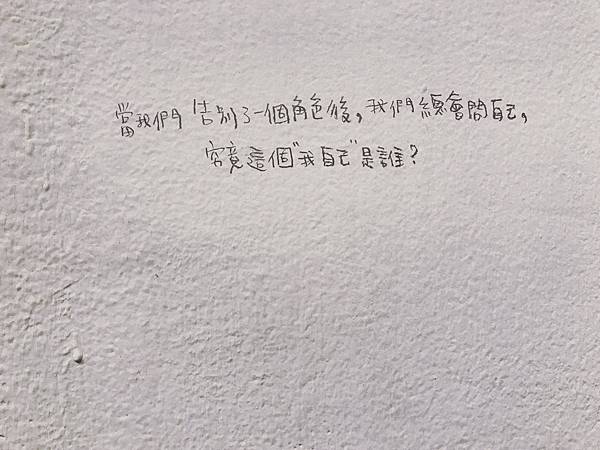 當我們告別了一個角色後,我們總會問自己,
究竟這個"我自己"是誰?